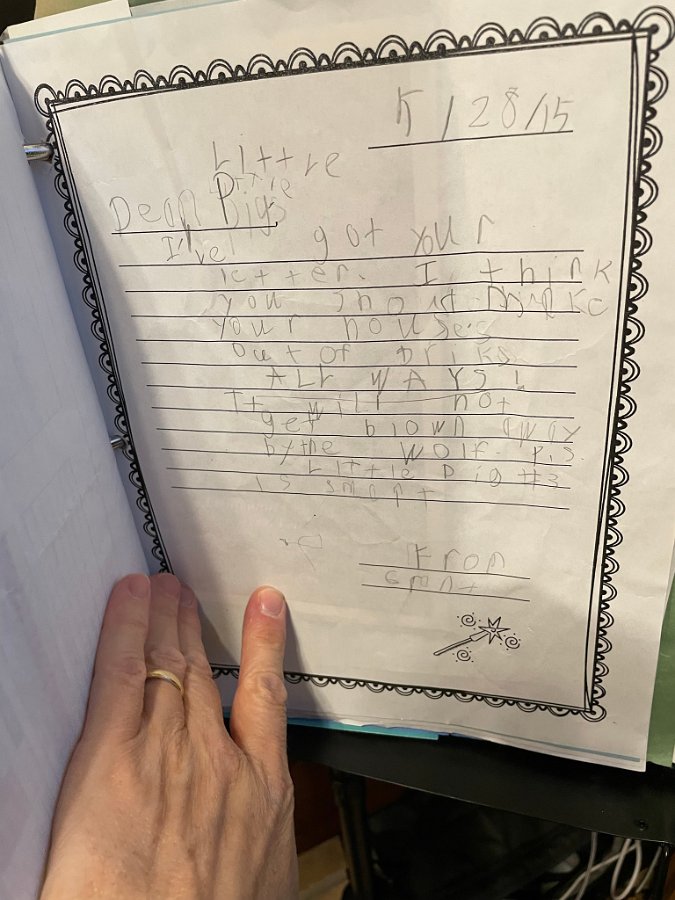 /28/15
Little
Dear Pigs
I've got your
letter. I think
you should make
your houses
out of briks
ALL WAYS!
It will not
get blown away
by the wolf P.S.
Little pig #3
is smart
From